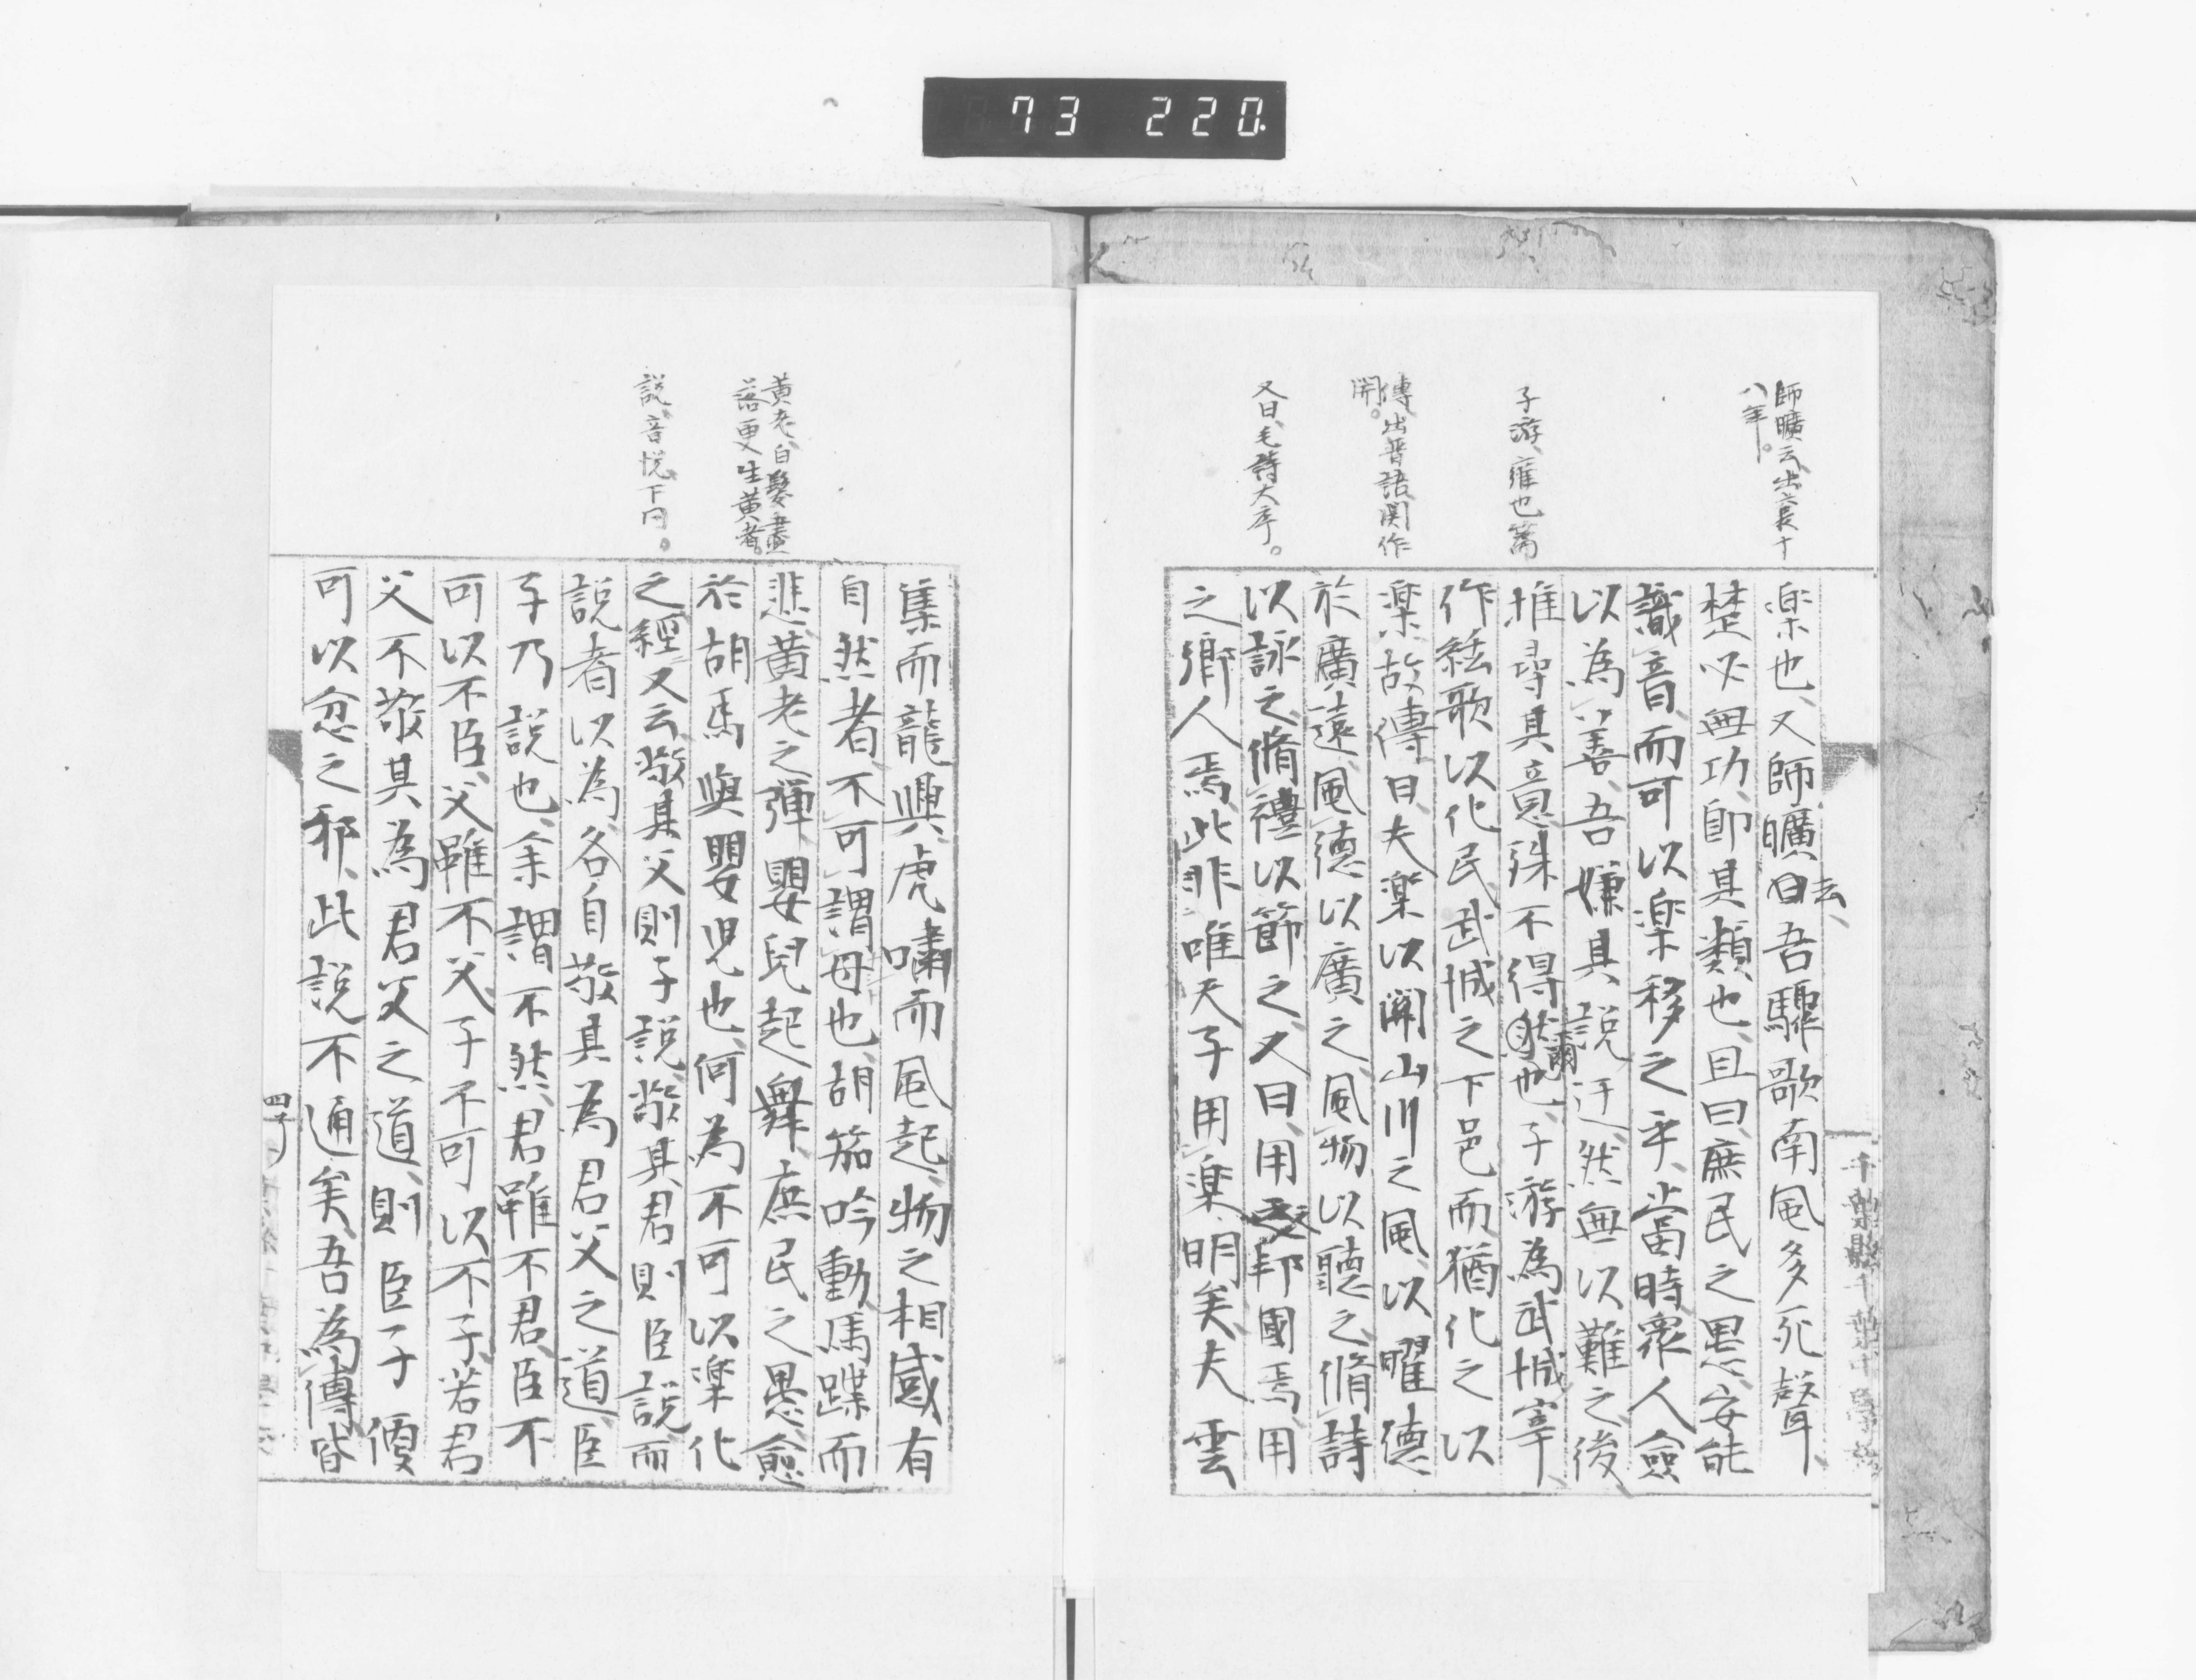 73 220.
師曠云、出襄十
八年。
子游、雍也篇
傳、出晋語、関作
開。
又曰、毛詩大序。
楽也、又師曠曰云、吾驟歌南風多死聲、
楚必無功、卽其類也、且曰、庶民之愚、安能
識音、而可以楽移之乎、當時衆人僉
以為善、吾嫌其説迂、然無以難之、後
推尋其意、殊不得然爾也、子游為武城宰、
作絃歌以化民、武城之下邑而猶化之以
楽、故傳曰、夫楽以開山川之風、以曜德
於廣遠、風德以廣之、風物以聽之、脩詩
以詠之、脩禮以節之、又曰、用之邦國焉、用
之鄕人焉、此非唯天子用楽、明矣、夫雲
千葉縣千葉中學校
黄老、白髮盡
落更生黄者。
説、音悦、下同。
集而龍興、虎嘯而風起、物之相感、有
自然者、不可謂毋也、胡笳吟動、馬蹀而
悲、黄老之彈、嬰兒起舞、庶民之愚、愈
於胡馬與嬰児也、何為不可以楽化
之、經又云、敬其父則子説、敬其君則臣説、而
説者以為各自敬其為君父之道、臣
子乃説也、余謂不然、君雖不君、臣不
可以不臣、父雖不父、子不可以不子、若君
父不敬其為君父之道、則臣子便
可以忿之邪、此説不通矣、吾為傳皆
四子